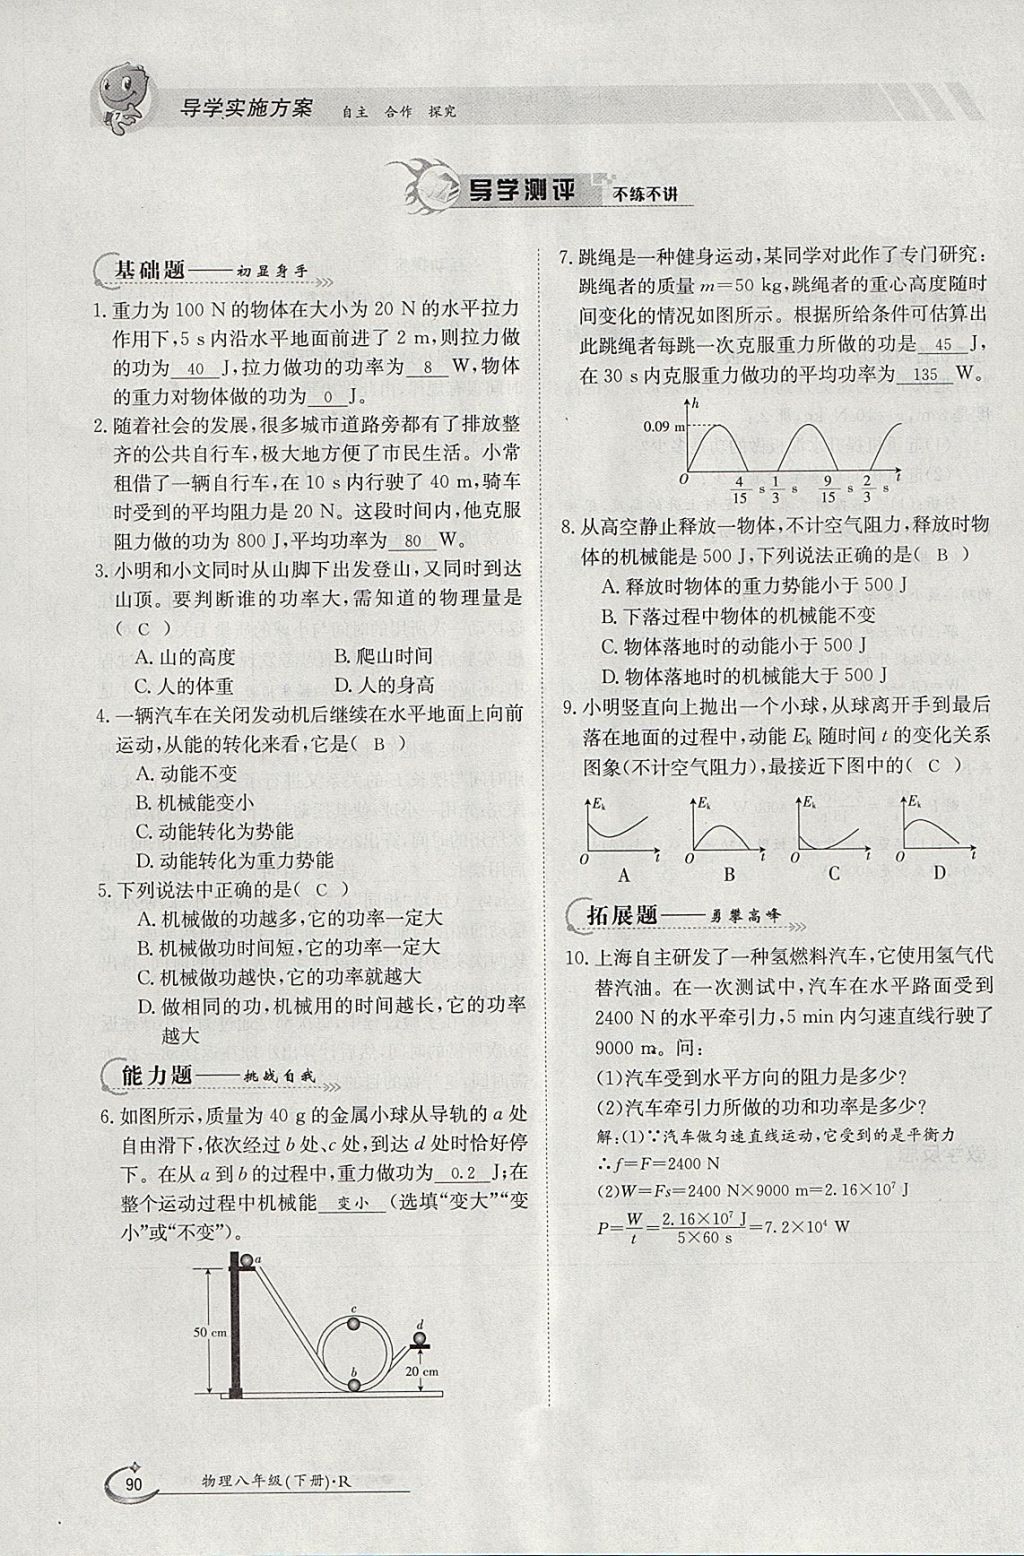 导学实施方案 自主 合作 探究
导学测评 不练不讲
基础题——初显身手
1. 重力为 100 N 的物体在大小为 20 N 的水平拉力
作用下,5 s 内沿水平地面前进了 2 m,则拉力做
的功为 40 J,拉力做功的功率为 8 W,物体
的重力对物体做的功为 0 J。
2. 随着社会的发展,很多城市道路旁都有了排放整
齐的公共自行车,极大地方便了市民生活。小常
租借了一辆自行车,在 10 s 内行驶了 40 m,骑车
时受到的平均阻力是 20 N。这段时间内,他克服
阻力做的功为 800 J,平均功率为 80 W。
3. 小明和小文同时从山脚下出发登山,又同时到达
山顶。要判断谁的功率大,需知道的物理量是
( C )
A. 山的高度 B. 爬山时间
C. 人的体重 D. 人的身高
4. 一辆汽车在关闭发动机后继续在水平地面上向前
运动,从能的转化来看,它是( B )
A. 动能不变
B. 机械能变小
C. 动能转化为势能
D. 动能转化为重力势能
5. 下列说法中正确的是( C )
A. 机械做的功越多,它的功率一定大
B. 机械做功时间短,它的功率一定大
C. 机械做功越快,它的功率就越大
D. 做相同的功,机械用的时间越长,它的功率
越大
能力题——挑战自我
6. 如图所示,质量为 40 g 的金属小球从导轨的 a 处
自由滑下,依次经过 b 处、c 处,到达 d 处时恰好停
下。在从 a 到 b 的过程中,重力做功为 0.2 J;在
整个运动过程中机械能 变小 (选填“变大”“变
小”或“不变”)。
a
c
d
50 cm
b
20 cm
7. 跳绳是一种健身运动,某同学对此作了专门研究:
跳绳者的质量 m=50 kg,跳绳者的重心高度随时
间变化的情况如图所示。根据所给条件可估算出
此跳绳者每跳一次克服重力所做的功是 45 J,
在 30 s 内克服重力做功的平均功率为 135 W。
h
0.09 m
O 4/15 s 1/3 s 9/15 s 2/3 s t
8. 从高空静止释放一物体,不计空气阻力,释放时物
体的机械能是 500 J,下列说法正确的是( B )
A. 释放时物体的重力势能小于 500 J
B. 下落过程中物体的机械能不变
C. 物体落地时的动能小于 500 J
D. 物体落地时的机械能大于 500 J
9. 小明竖直向上抛出一个小球,从球离开手到最后
落在地面的过程中,动能 Ek 随时间 t 的变化关系
图象(不计空气阻力),最接近下图中的( C )
Ek Ek Ek Ek
O t O t O t O t
A B C D
拓展题——勇攀高峰
10. 上海自主研发了一种氢燃料汽车,它使用氢气代
替汽油。在一次测试中,汽车在水平路面受到
2400 N 的水平牵引力,5 min 内匀速直线行驶了
9000 m。问:
(1)汽车受到水平方向的阻力是多少?
(2)汽车牵引力所做的功和功率是多少?
解:(1)∵汽车做匀速直线运动,它受到的是平衡力
∴f=F=2400 N
(2)W=Fs=2400 N×9000 m=2.16×10⁷ J
P=W/t=2.16×10⁷ J/5×60 s=7.2×10⁴ W
90 物理八年级(下册)·R